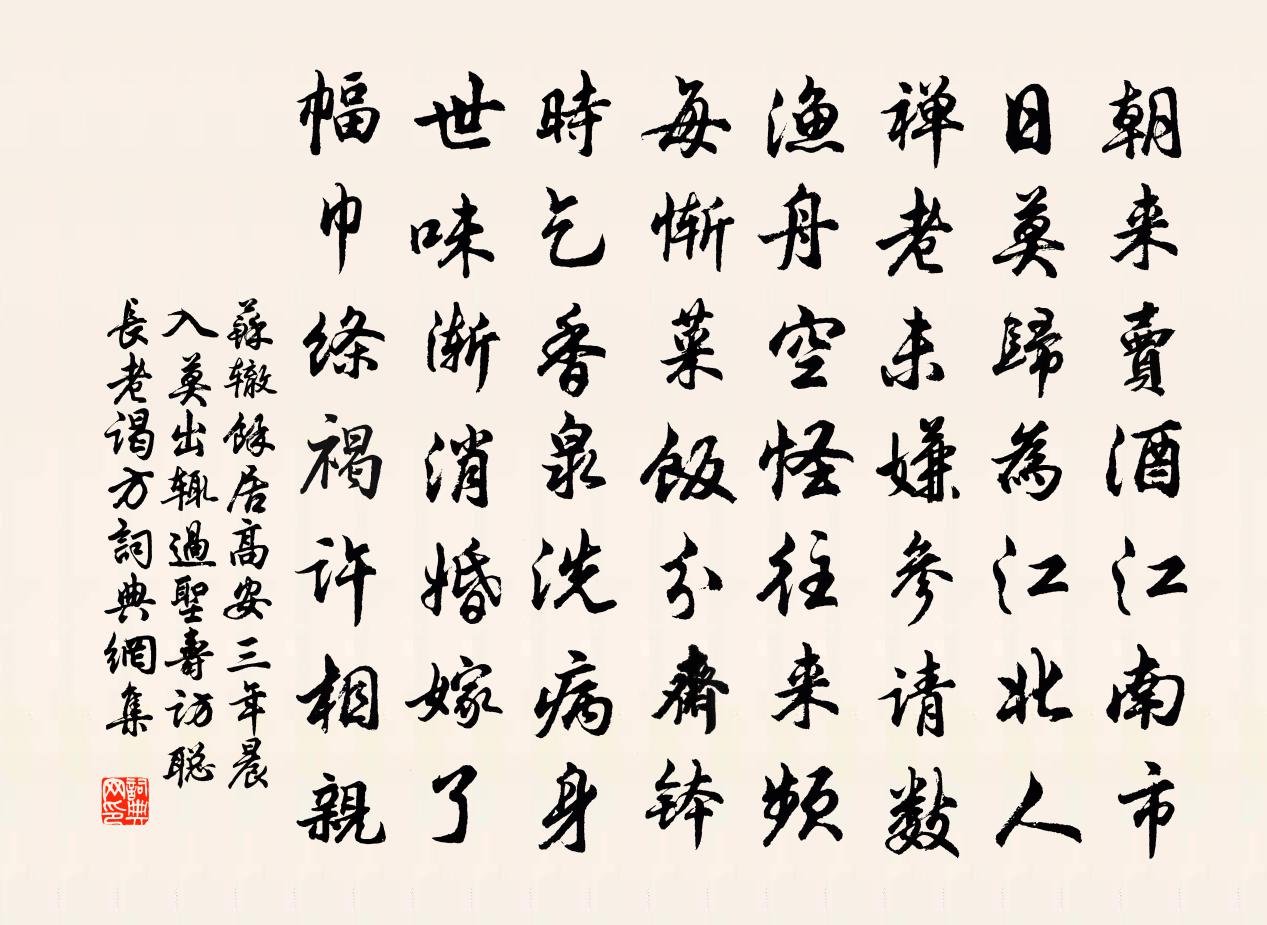 朝来賣酒江南市
日莫歸為江北人
禅老未嫌參请數
漁舟空怪往来頻
每慚菜飯分齋鉢
時乞香泉洗病身
世味漸消婚嫁了
幅巾絛褐许相親
蘇辙餘居高安三年晨
入莫出辄過聖壽访聪
長老谒方詞典網集
詞典网印